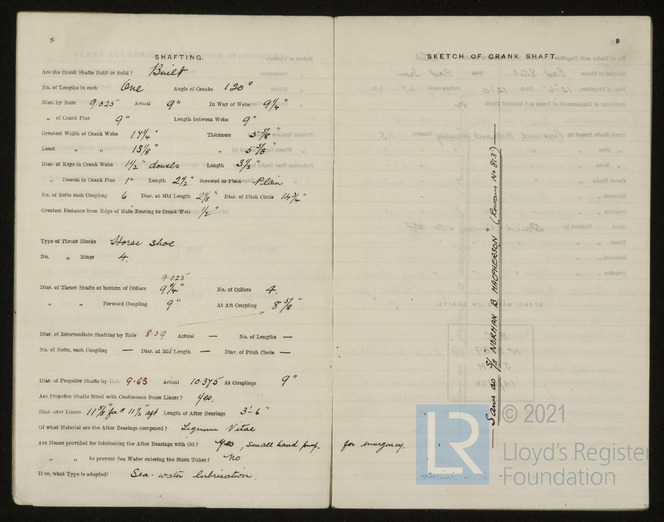 8
SHAFTING.
Are the Crank Shafts Built or Solid? Built
No. of Lengths in each One Angle of Cranks 120°
Diar. by Rule 9.025 Actual 9" In Way of Webs 9¼"
„ of Crank Pins 9" Length between Webs 9"
Greatest Width of Crank Webs 17¼" Thickness 5⅝"
Least „ „ 13⅛" „ 5⅝"
Diar. of Keys in Crank Webs 1½" dowels Length 3½"
„ Dowels in Crank Pins 1" Length 2½" Screwed or Plain Plain
No. of Bolts each Coupling 6 Diar. at Mid Length 2⅛" Diar. of Pitch Circle 14¾"
Greatest Distance from Edge of Main Bearing to Crank Web ½"
Type of Thrust Blocks Horse shoe
No. „ Rings 4
9.025
Diar. of Thrust Shafts at bottom of Collars 9¼" No. of Collars 4
„ „ Forward Coupling 9" At Aft Coupling 8⅝"
Diar. of Intermediate Shafting by Rule 8.59 Actual — No. of Lengths —
No. of Bolts, each Coupling — Diar. at Mid Length — Diar. of Pitch Circle —
Diar. of Propeller Shafts by Rule 9.63 Actual 10.375 At Couplings 9"
Are Propeller Shafts fitted with Continuous Brass Liners? Yes.
Diar. over Liners for'd 11½" aft Length of After Bearings 3'-6"
Of what Material are the After Bearings composed? Lignum Vitae
Are Means provided for lubricating the After Bearings with Oil? Yes, small hand pump for emergency.
„ „ to prevent Sea Water entering the Stern Tubes? No
If so, what Type is adopted? Sea-water lubrication.
9
SKETCH OF CRANK SHAFT.
Same as S/S "NORMAN B. MACPHERSON" (Rowans No 813)
© 2021
LR
Lloyd's Register
Foundation